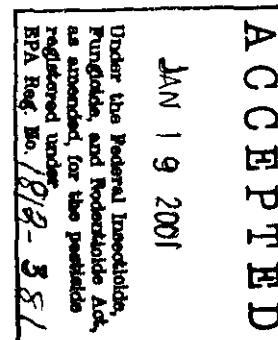 ACCEPTED
JAN 19 2001
Under the Federal Insecticide,
Fungicide, and Rodenticide Act,
as amended, for the pesticide
registered under
EPA Reg. No. 1812-381